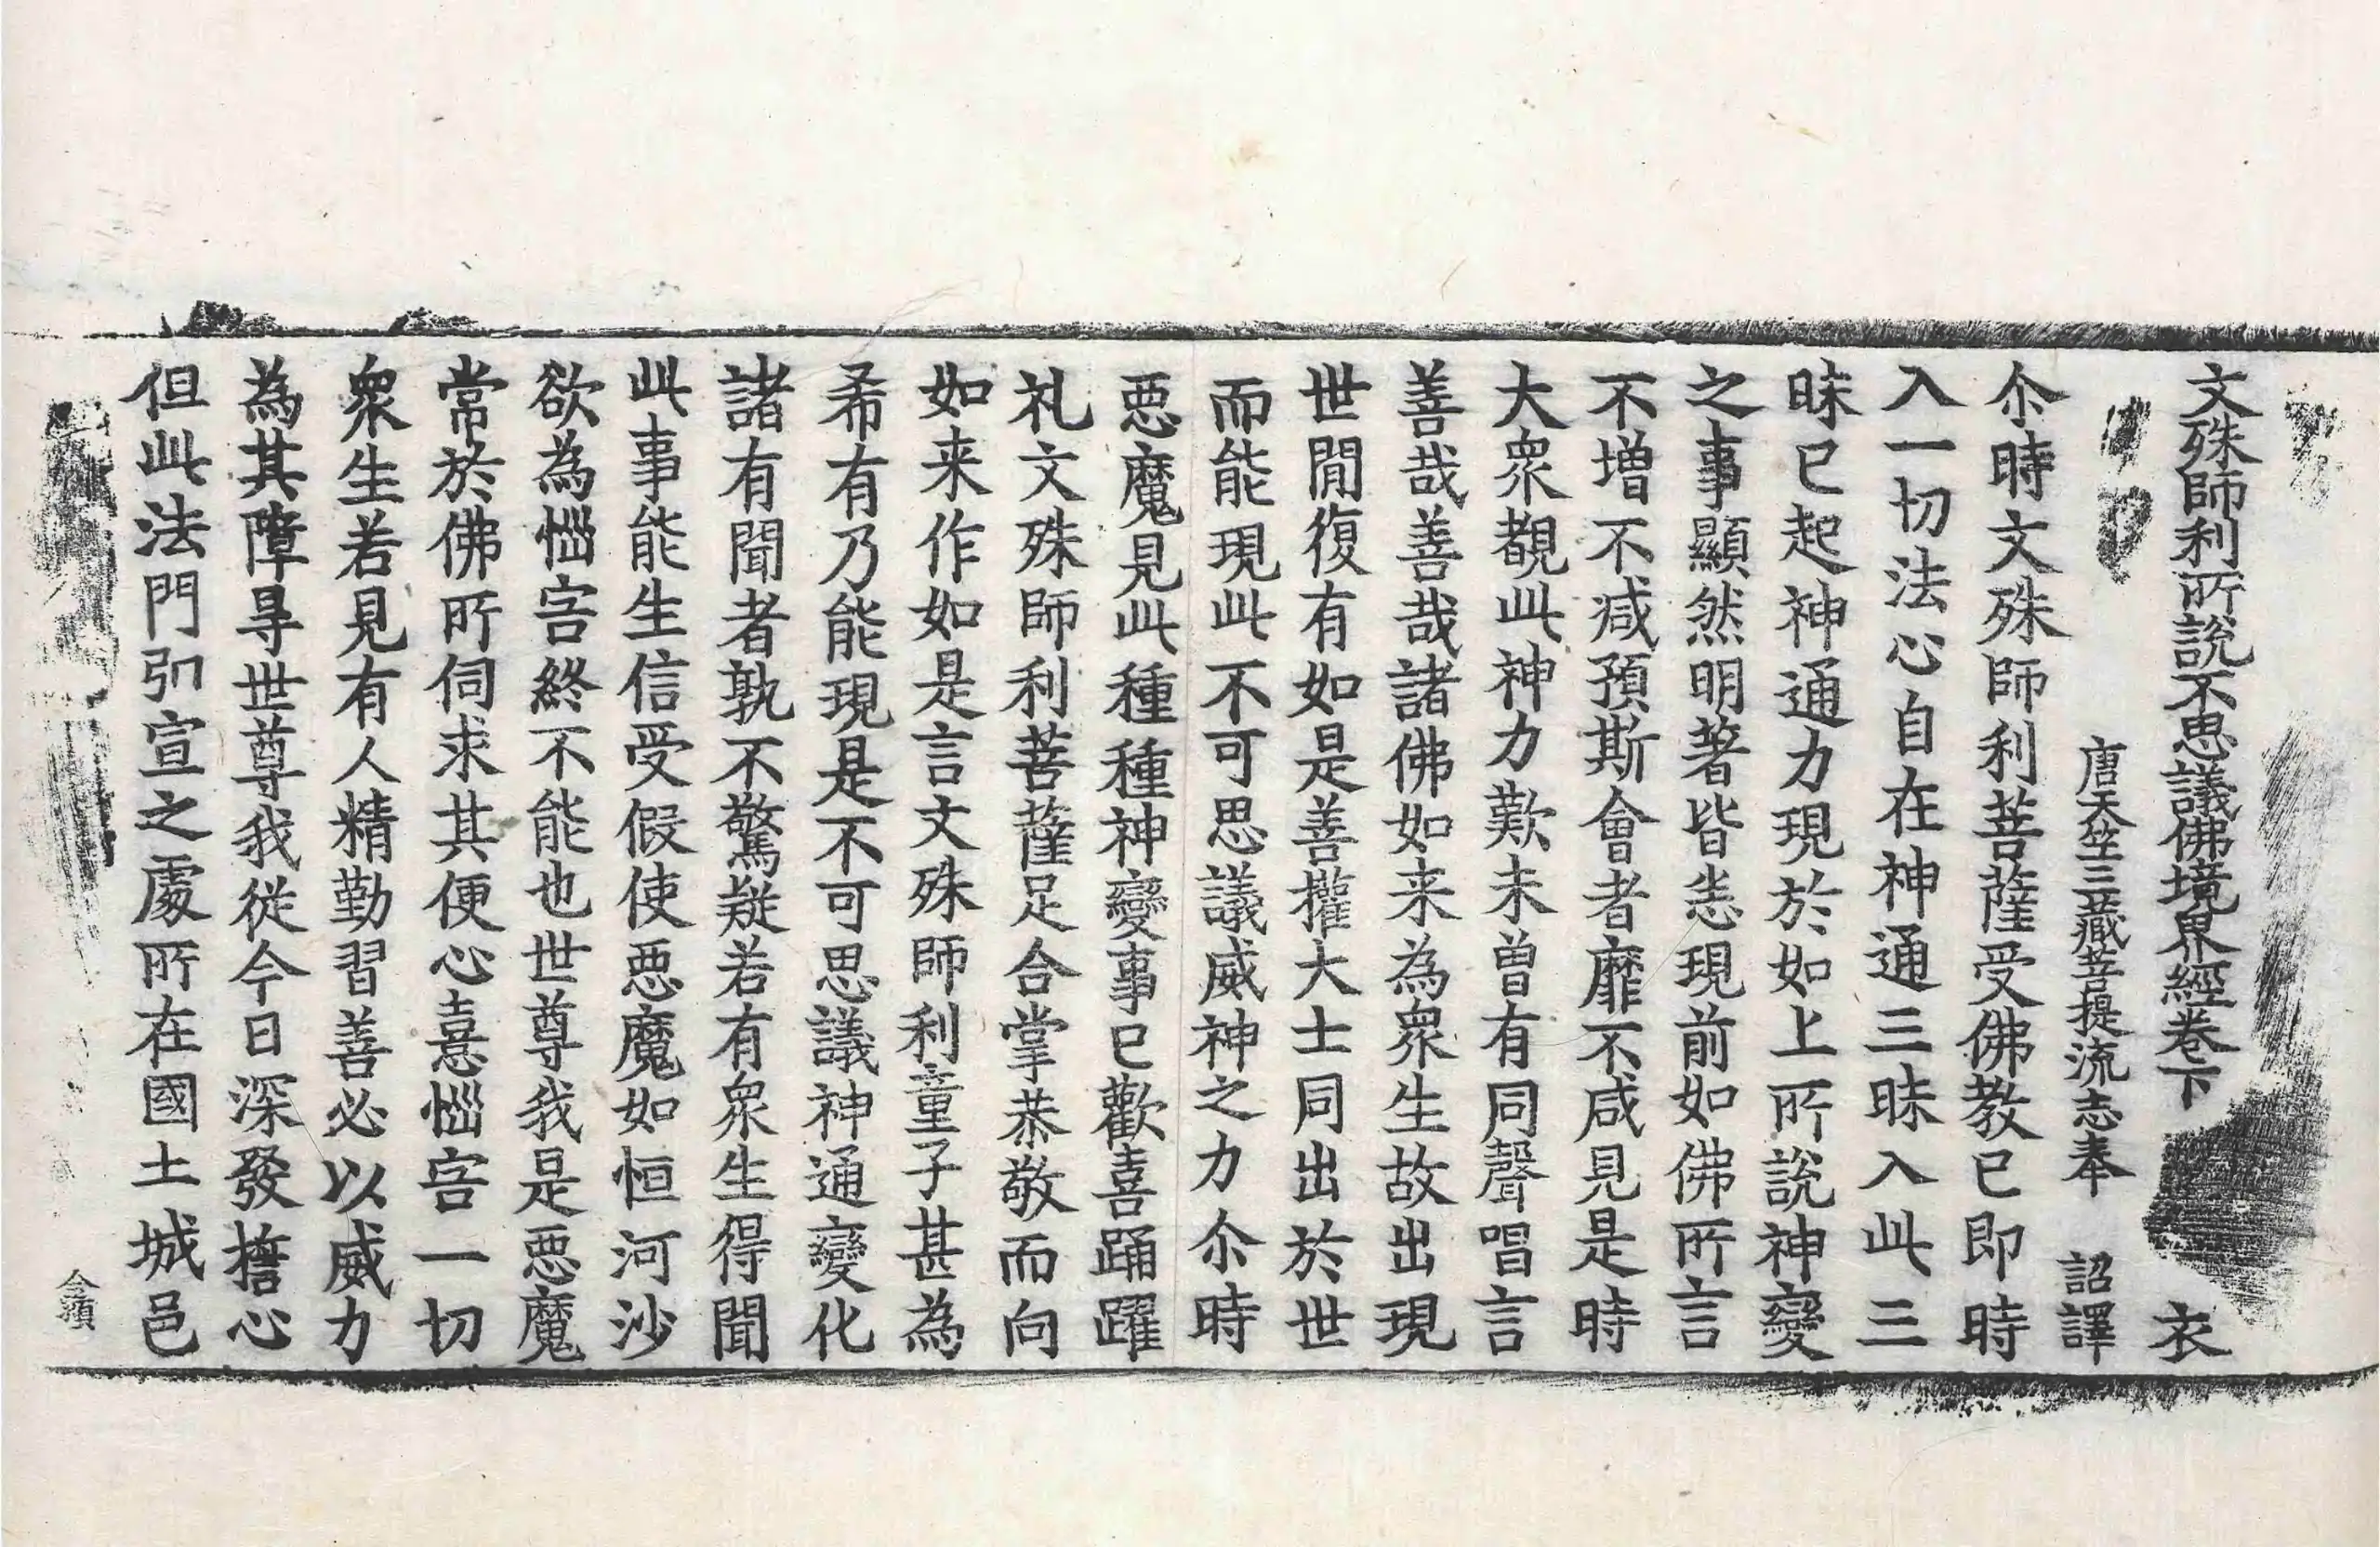 文殊師利所說不思議佛境界經卷下 衣
唐天竺三藏菩提流志奉 詔譯
尒時文殊師利菩薩受佛教已即時
入一切法心自在神通三昧入此三
昧已起神通力現於如上所說神變
之事顯然明著皆悉現前如佛所言
不增不减預斯會者靡不咸見是時
大衆覩此神力歎未曾有同聲唱言
善哉善哉諸佛如来為衆生故出現
世閒復有如是善權大士同出於世
而能現此不可思議威神之力尒時
惡魔見此種種神變事已歡喜踊躍
礼文殊師利菩薩足合掌恭敬而向
如来作如是言文殊師利童子甚為
希有乃能現是不可思議神通變化
諸有聞者孰不驚疑若有衆生得聞
此事能生信受假使惡魔如恒河沙
欲為惱害終不能也世尊我是惡魔
常於佛所伺求其便心憙惱害一切
衆生若見有人精勤習善必以威力
為其障㝵世尊我從今日深發擔心
但此法門所宣之處所在國土城邑
令蘋